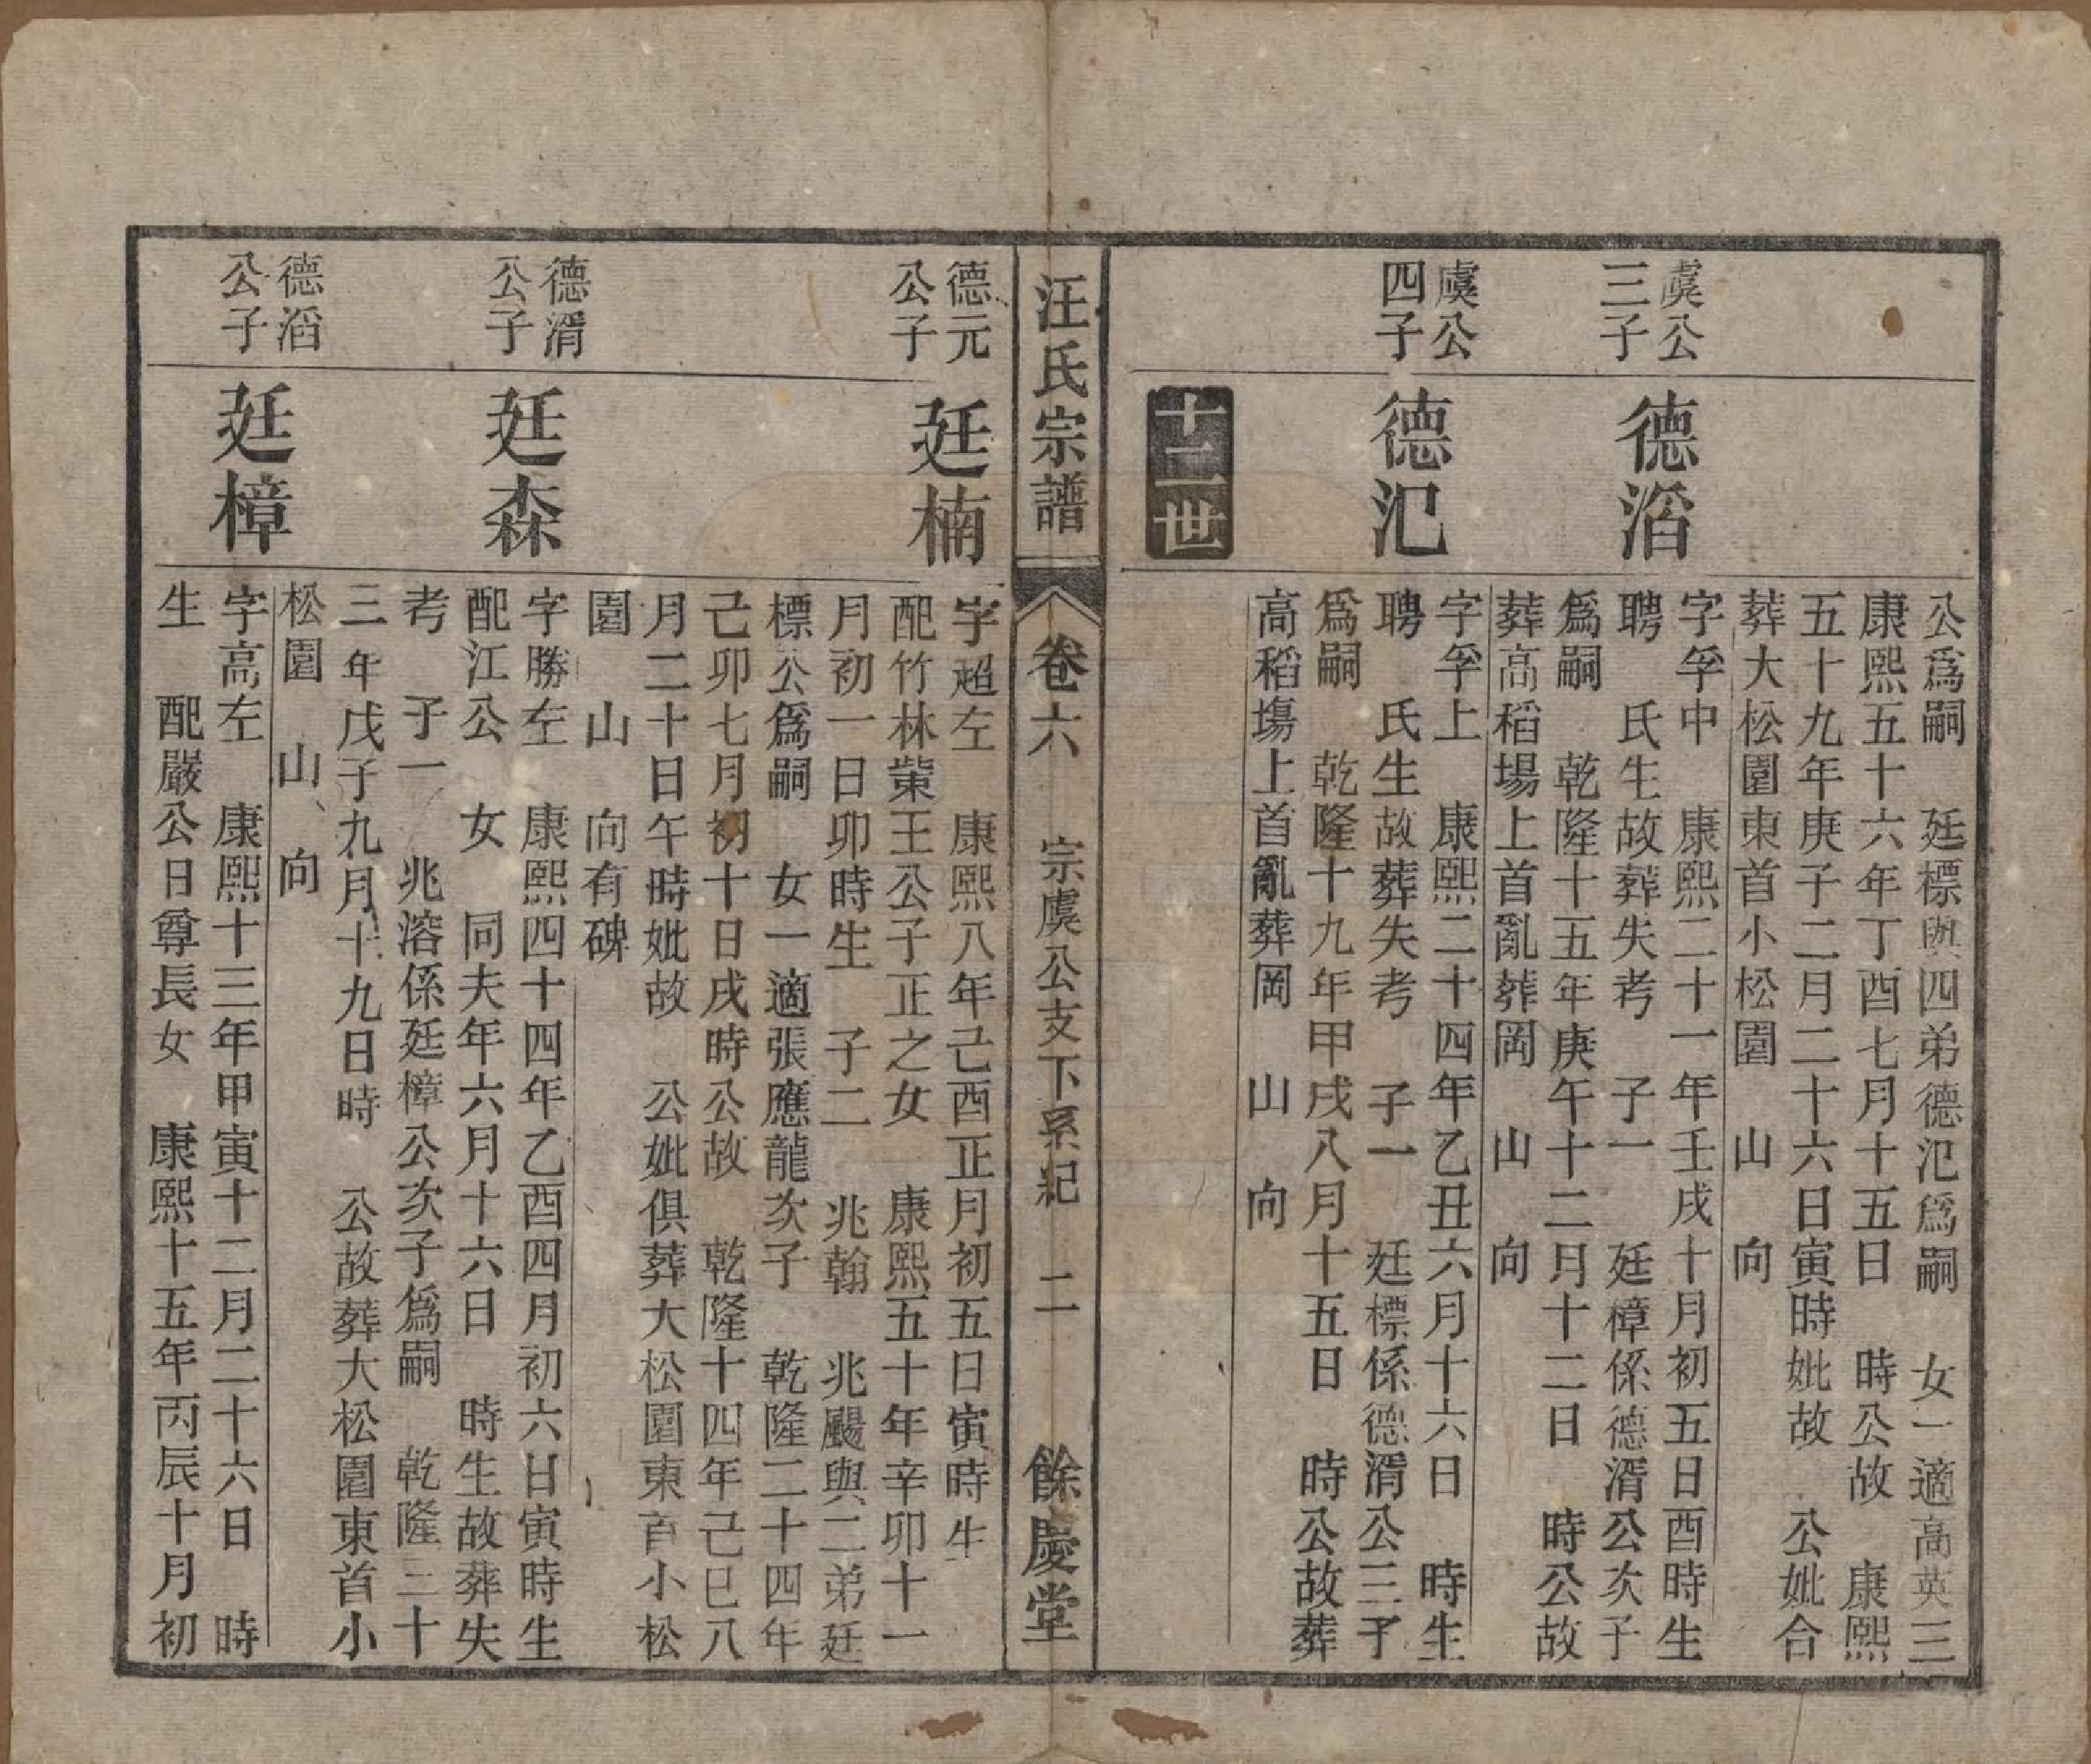 公爲嗣　廷標與四弟德氾爲嗣　女一適高英三
康熙五十六年丁酉七月十五日　時公故　康熙
五十九年庚子二月二十六日寅時妣故　公妣合
葬大松園東首小松園　山　向
虞公
三子
德滔
字孚中　康熙二十一年壬戌十月初五日酉時生
聘　氏生故葬失考　子一　廷樟係德湑公次子
爲嗣　乾隆十五年庚午十二月十二日　時公故
葬高稻場上首亂葬岡　山　向
虞公
四子
德氾
字孚上　康熙二十四年乙丑六月十六日　時生
聘　氏生故葬失考　子一　廷標係德湑公三子
爲嗣　乾隆十九年甲戌八月十五日　時公故葬
高稻塲上首亂葬岡　山　向
十二世
汪氏宗譜　卷六　宗虞公支下系紀　二　餘慶堂
德元
公子
廷楠
字超左　康熙八年己酉正月初五日寅時生
配竹林黨王公子正之女　康熙五十年辛卯十一
月初一日卯時生　子二　兆翰　兆颺與二弟廷
標公爲嗣　女一適張應龍次子　乾隆二十四年
己卯七月初十日戌時公故　乾隆十四年己巳八
月二十日午時妣故　公妣俱葬大松園東首小松
園　山　向有碑
德湑
公子
廷森
字勝左　康熙四十四年乙酉四月初六日寅時生
配江公　女　同夫年六月十六日　時生故葬失
考　子一　兆溶係廷樟公次子爲嗣　乾隆三十
三年戊子九月十九日時　公故葬大松園東首小
松園　山　向
德滔
公子
廷樟
字高左　康熙十三年甲寅十二月二十六日　時
生　配嚴公日尊長女　康熙十五年丙辰十月初